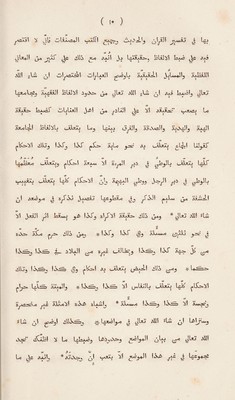 ( ١٠ )
بها في تفسير القران والحديث وجميع الكتب المصنّفات فانّى لا اقتصر
فيه على ضبط الالفاظ وحقيقتها بل انبّه مع ذلك على كثير من المعانى
اللفظية والمسايل الحقيقيّة باوضح العبارات المختصرات ان شاء اللّه
تعالى واضبط فيه ان شاء اللّه تعالى من حدود الالفاظ الفقهيّة ومجامعها
ما يصعب تحقيقه الّا على النادر من اهل العنايات كضبط حقيقة
الهبة والهدية والصدقة والفرق بينها وما يتعلّف بالالفاظ الجامعة
كقولنا الجماع يتعلّف به نحو ماية حكم كذا وكذا وتلك الاحكام
كلّها يتعلّف بالوطئ في دبر المرءة الّا سبعة احكام ويتعلّف مُعْظَمُها
بالوطئ في دبر الرجل ووطئ البهيمة وانّ الاحكام كلّها تتعلّف بتغييب
الحشفة من سليم الذكر وفي مقطوعها تفصيل نذكره في موضعه ان
شاء اللّه تعالى ٭ ومن ذلك حقيقة الاكراه وكذا هو يسقط اثر الفعل الّا
في نحو ثلثين مسئلة وفي كذا وكذا ٭ ومن ذلك حرم مكّة حدّه
من كلّ جهة كذا وكذا ويخالف غيره من البلاد في كذا وكذا
حكما ٭ ومن ذلك الحيض يتعلّف به احكام وفي كذا وكذا وتلك
الاحكام كلّها يتعلّف بالنفاس الّا كذا وكذا ٭ والميتة كلّها حرام
ونجسة الّا كذا وكذا مسئلةً ٭ واشباه هذه الامثلة غير منحصرة
وستراها ان شاء اللّه تعالى في مواضعها ٭ وكذلك اوضح ان شاء
اللّه تعالى من بيان المواضع وحدودها وضبطها ما لا اظنّك تجد
مجموعها في غير هذا الموضع الّا بتعب إنْ وجدتَهُ ٭ وانبّه على ما